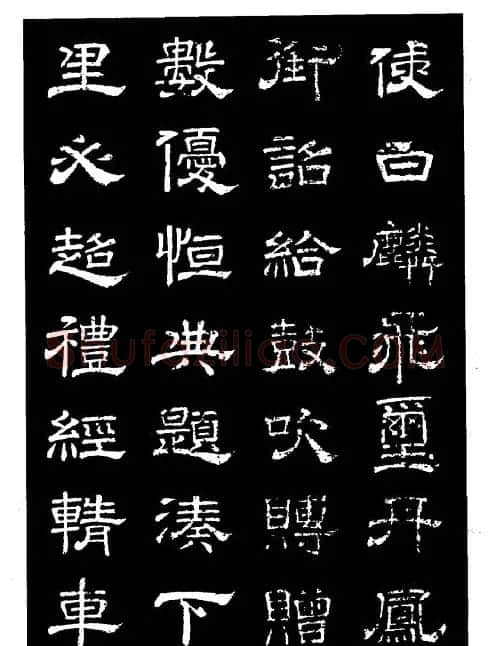 使白麟飛璽丹鳳
銜詔給鼓吹賻贈
數優恒典題湊下
里必超禮經輤車